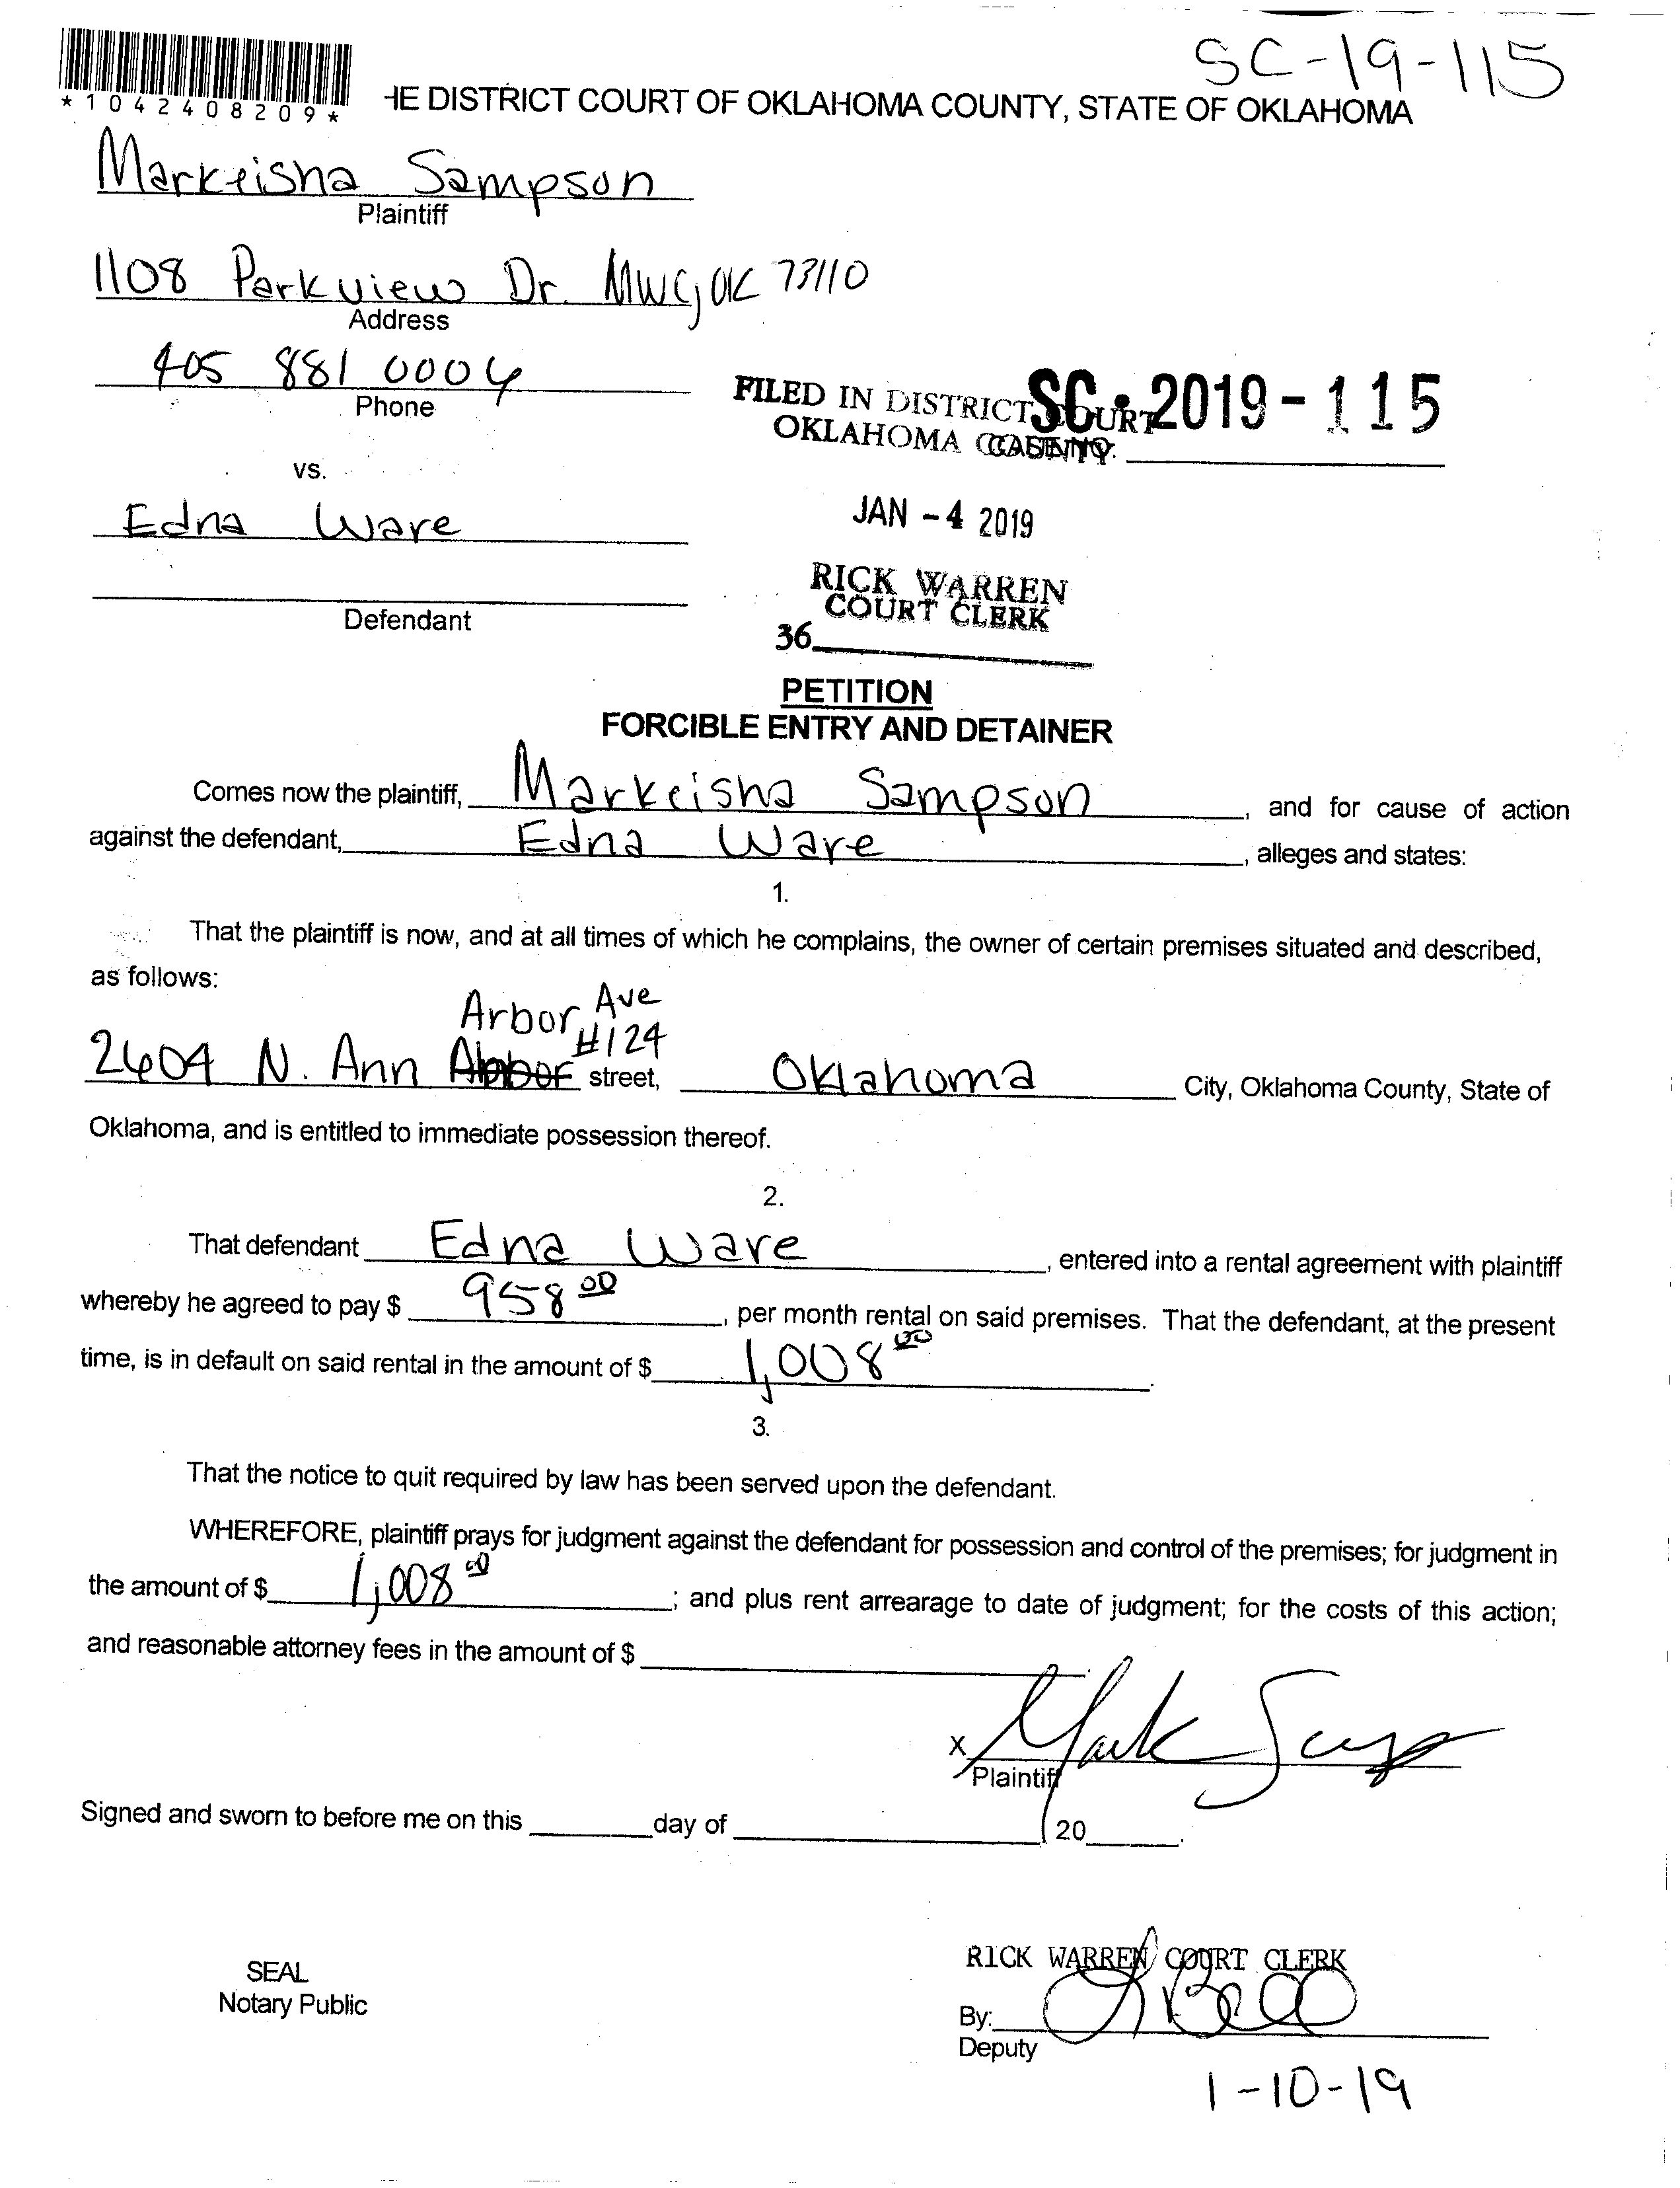 SC-19-115
*1042408209*
HE DISTRICT COURT OF OKLAHOMA COUNTY, STATE OF OKLAHOMA
Markeisha Sampson
Plaintiff
1108 Parkview Dr. MWC, OK 73110
Address
405 881 0004
Phone
FILED IN DISTRICT COURT
OKLAHOMA COUNTY
SC-2019-115
CASE NO.
vs.
JAN -4 2019
Edna Ware
RICK WARREN
COURT CLERK
Defendant
36
PETITION
FORCIBLE ENTRY AND DETAINER
Comes now the plaintiff, Markeisha Sampson, and for cause of action
against the defendant, Edna Ware, alleges and states:
1.
That the plaintiff is now, and at all times of which he complains, the owner of certain premises situated and described,
as follows:
Arbor Ave
#124
2604 N. Ann Abbor street, Oklahoma City, Oklahoma County, State of
Oklahoma, and is entitled to immediate possession thereof.
2.
That defendant Edna Ware, entered into a rental agreement with plaintiff
whereby he agreed to pay $ 958 00, per month rental on said premises. That the defendant, at the present
time, is in default on said rental in the amount of $ 1,008 00.
3.
That the notice to quit required by law has been served upon the defendant.
WHEREFORE, plaintiff prays for judgment against the defendant for possession and control of the premises; for judgment in
the amount of $ 1,008 00; and plus rent arrearage to date of judgment; for the costs of this action;
and reasonable attorney fees in the amount of $
X
Plaintiff
Signed and sworn to before me on this day of 20.
SEAL
Notary Public
RICK WARREN COURT CLERK
By:
Deputy
1-10-19